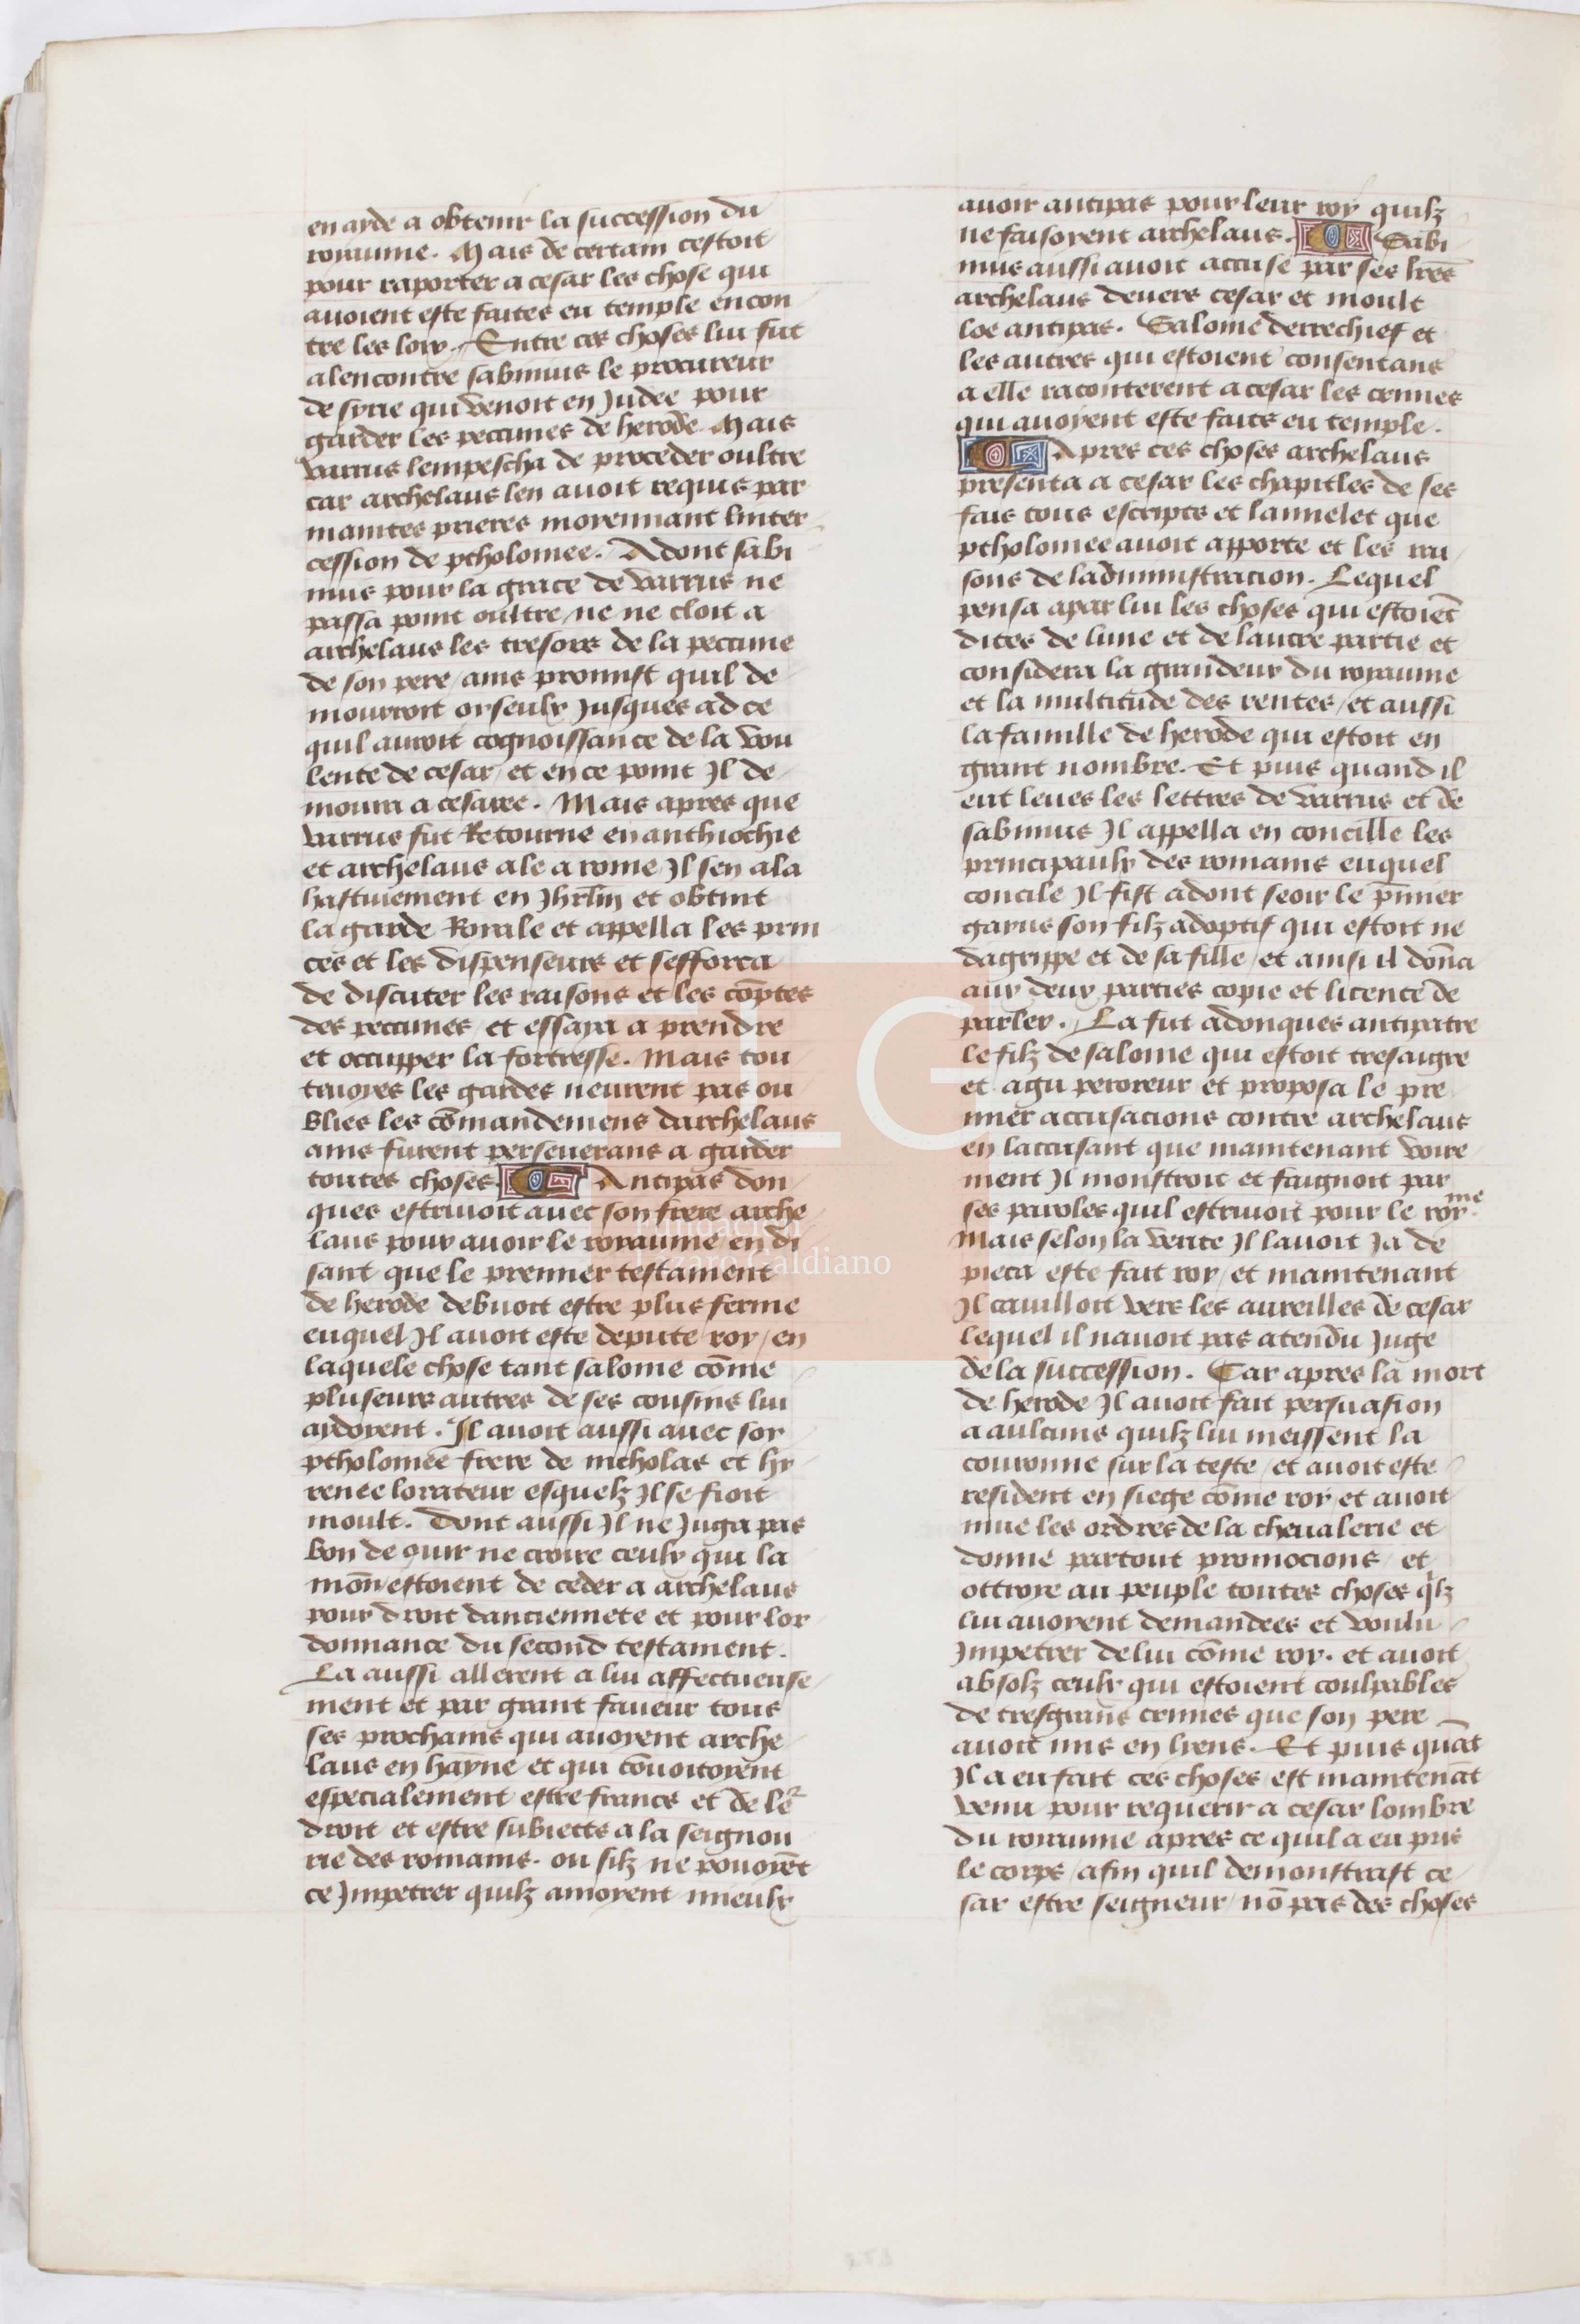 en ayde a obtenir la succession du
royaume. Mais de certain cestoit
pour raporter a cesar les chose qui
avoient este faites eu temple encon
tre les loix. Entre ces choses lui fut
alencontre sabinus le procureur
de syrie qui venoit en Judee pour
garder les peccunes de herode. Mais
varrus lempescha de proceder oultre
car archelaus len avoit requis par
maintes prieres moyennant linter
cession de ptholomee. Adont sabi
nus pour la grace de varrus ne
passa point oultre / ne ne cloit a
archelaus les tresors de la peccune
de son pere / ains promist quil de
mourroit oyseulx Jusques ad ce
quil auroit cognoissance de la vou
lente de cesar / et en ce point Il de
moura a cesaree. Mais apres que
varrus fut Retourne en anthiochie
et archelaus ale a rome / Il sen ala
hastivement en Jhrlm et obtint
la garde Royale et appella les prin
ces et les dispenseurs et sefforca
de discuter les raisons et les cōptes
des peccunes / et essaya a prendre
et occupper la fortresse. Mais tou
tevoyes les gardes neurent pas ou
blies les cōmandemens darchelaus
ains furent perseverans a garder
toutes choses. Antipas don
ques estrivoit avec son frere arche
laus pour avoir le royaume / en di
sant que le premier testament
de herode debvoit estre plus ferme
euquel Il avoit este depute roy / en
laquele chose tant salome cōme
pluseurs autres de ses cousins lui
aydoyent. Il avoit aussi avec soy
ptholomee frere de nicholas et hy
renee lorateur esquelz Il se fioit
moult. Dont aussi Il ne Juga pas
bon de ouir ne croire ceulx qui la
mōnestoient de ceder a archelaus
pour droit danciennete et pour lor
donnance du second testament.
La aussi allerent a lui affectueuse
ment et par grant faveur tous
ses prochains qui avoyent arche
laus en hayne et qui cōvoitoyent
especialement estre francs et de le͛
droit et estre subiects a la seignou
rie des romains. ou silz ne povoyēt
ce Impetrer quilz amoyent mieulx
avoir antipas pour leur roy quilz
ne faisoyent archelaus. Sabi
nus aussi avoit accuse par ses lrēs
archelaus devers cesar et moult
loe antipas. Salome derrechief et
les autres qui estoient consentans
a elle raconterent a cesar les crimes
qui avoyent este faits eu temple.
Apres ces choses archelaus
presenta a cesar les chapitles de ses
fais tous escripts et lannelet que
ptholomee avoit apporte et les rai
sons de ladministracion. Lequel
pensa apar lui les choses qui estoiēt
dites de lune et de lautre partie et
considera la grandeur du royaume
et la multitude des rentes / et aussi
la famille de herode qui estoit en
grant nombre. Et puis quand il
eut leues les lettres de varrus et de
sabinus Il appella en concille les
principaulx des romains euquel
concile Il fist adont seoir le p̄mier
gayus son filz adoptif qui estoit ne
dagrippe et de sa fille / et ainsi il dōna
aux deux parties copie et licence de
parler. La fut adonques antipatre
le filz de salome qui estoit tresaigre
et agu peroreur et proposa le pre
mier accusacions contre archelaus
en laccusant que maintenant voire
ment Il monstroit et faignoit par
ses paroles quil estrivoit pour le royme.
Mais selon la verite Il lavoit Ja de
pieca este fait roy / et maintenant
Il cavilloit vers les aureilles de cesar
lequel il navoit pas atendu Juge
de la succession. Car apres la mort
de herode Il avoit fait persuasion
a aulcuns quilz lui meissent la
couronne sur la teste / et avoit este
resident en siege cōme roy et avoit
mue les ordres de la chevalerie et
donne partout promocions / et
ottroye au peuple toutes choses q̄lz
lui avoyent demandees et voulu
Impetrer de lui cōme roy. et avoit
absolz ceulx qui estoient coulpables
de tresgrans crimes que son pere
avoit mis en liens. Et puis quāt
Il a eu fait ces choses / est maintenāt
venu pour requerir a cesar lombre
du royaume apres ce quil a eu pris
le corps / afin quil demonstrast ce
sar estre seigneur / nō pas des choses
LG
Fundación
Lázaro Galdiano